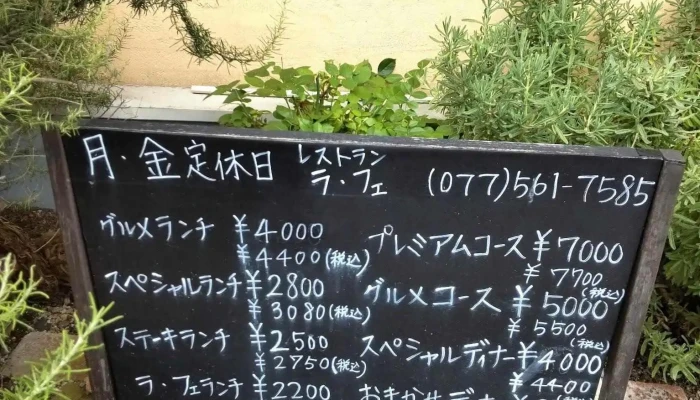 月・金定休日
レストラン
ラ・フェ
(077)561-7585
グルメランチ ¥4000
¥4400(税込)
スペシャルランチ ¥2800
¥3080(税込)
ステーキランチ ¥2500
¥2750(税込)
ラ・フェランチ ¥2200
プレミアムコース ¥7000
¥7700
(税込)
グルメコース ¥5000
¥5500
(税込)
スペシャルディナー ¥4000
¥4400